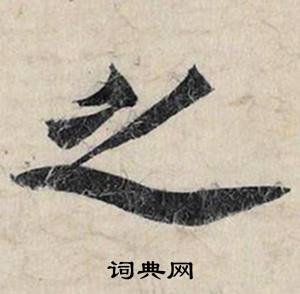 之
词典网